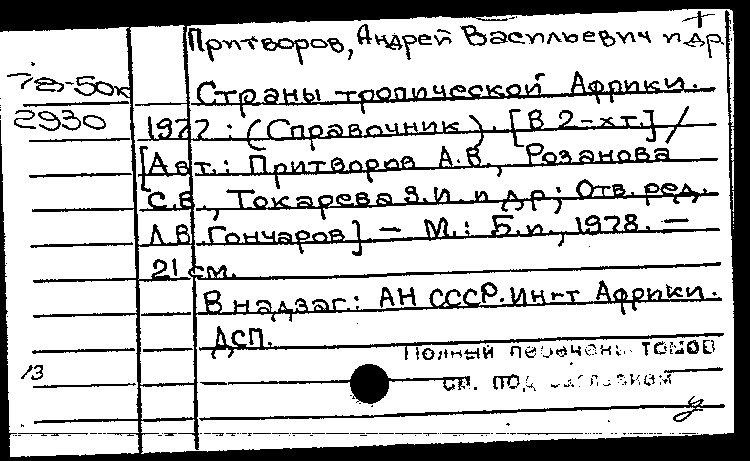 Притворов, Андрей Васильевич и др
78-50к
Страны тропической Африки.
2930
1977 : (Справочник). [В 2-х т.] /
[Авт.: Притворов А.В., Розанова
С.Б., Токарева З.И. и др; Отв. ред.
Л.В. Гончаров] . — М.: Б.и., 1978. —
21 см.
В надзаг.: АН СССР. Ин-т Африки.
ДСП.
Полный перечень томов
см. под заглавием
13
у